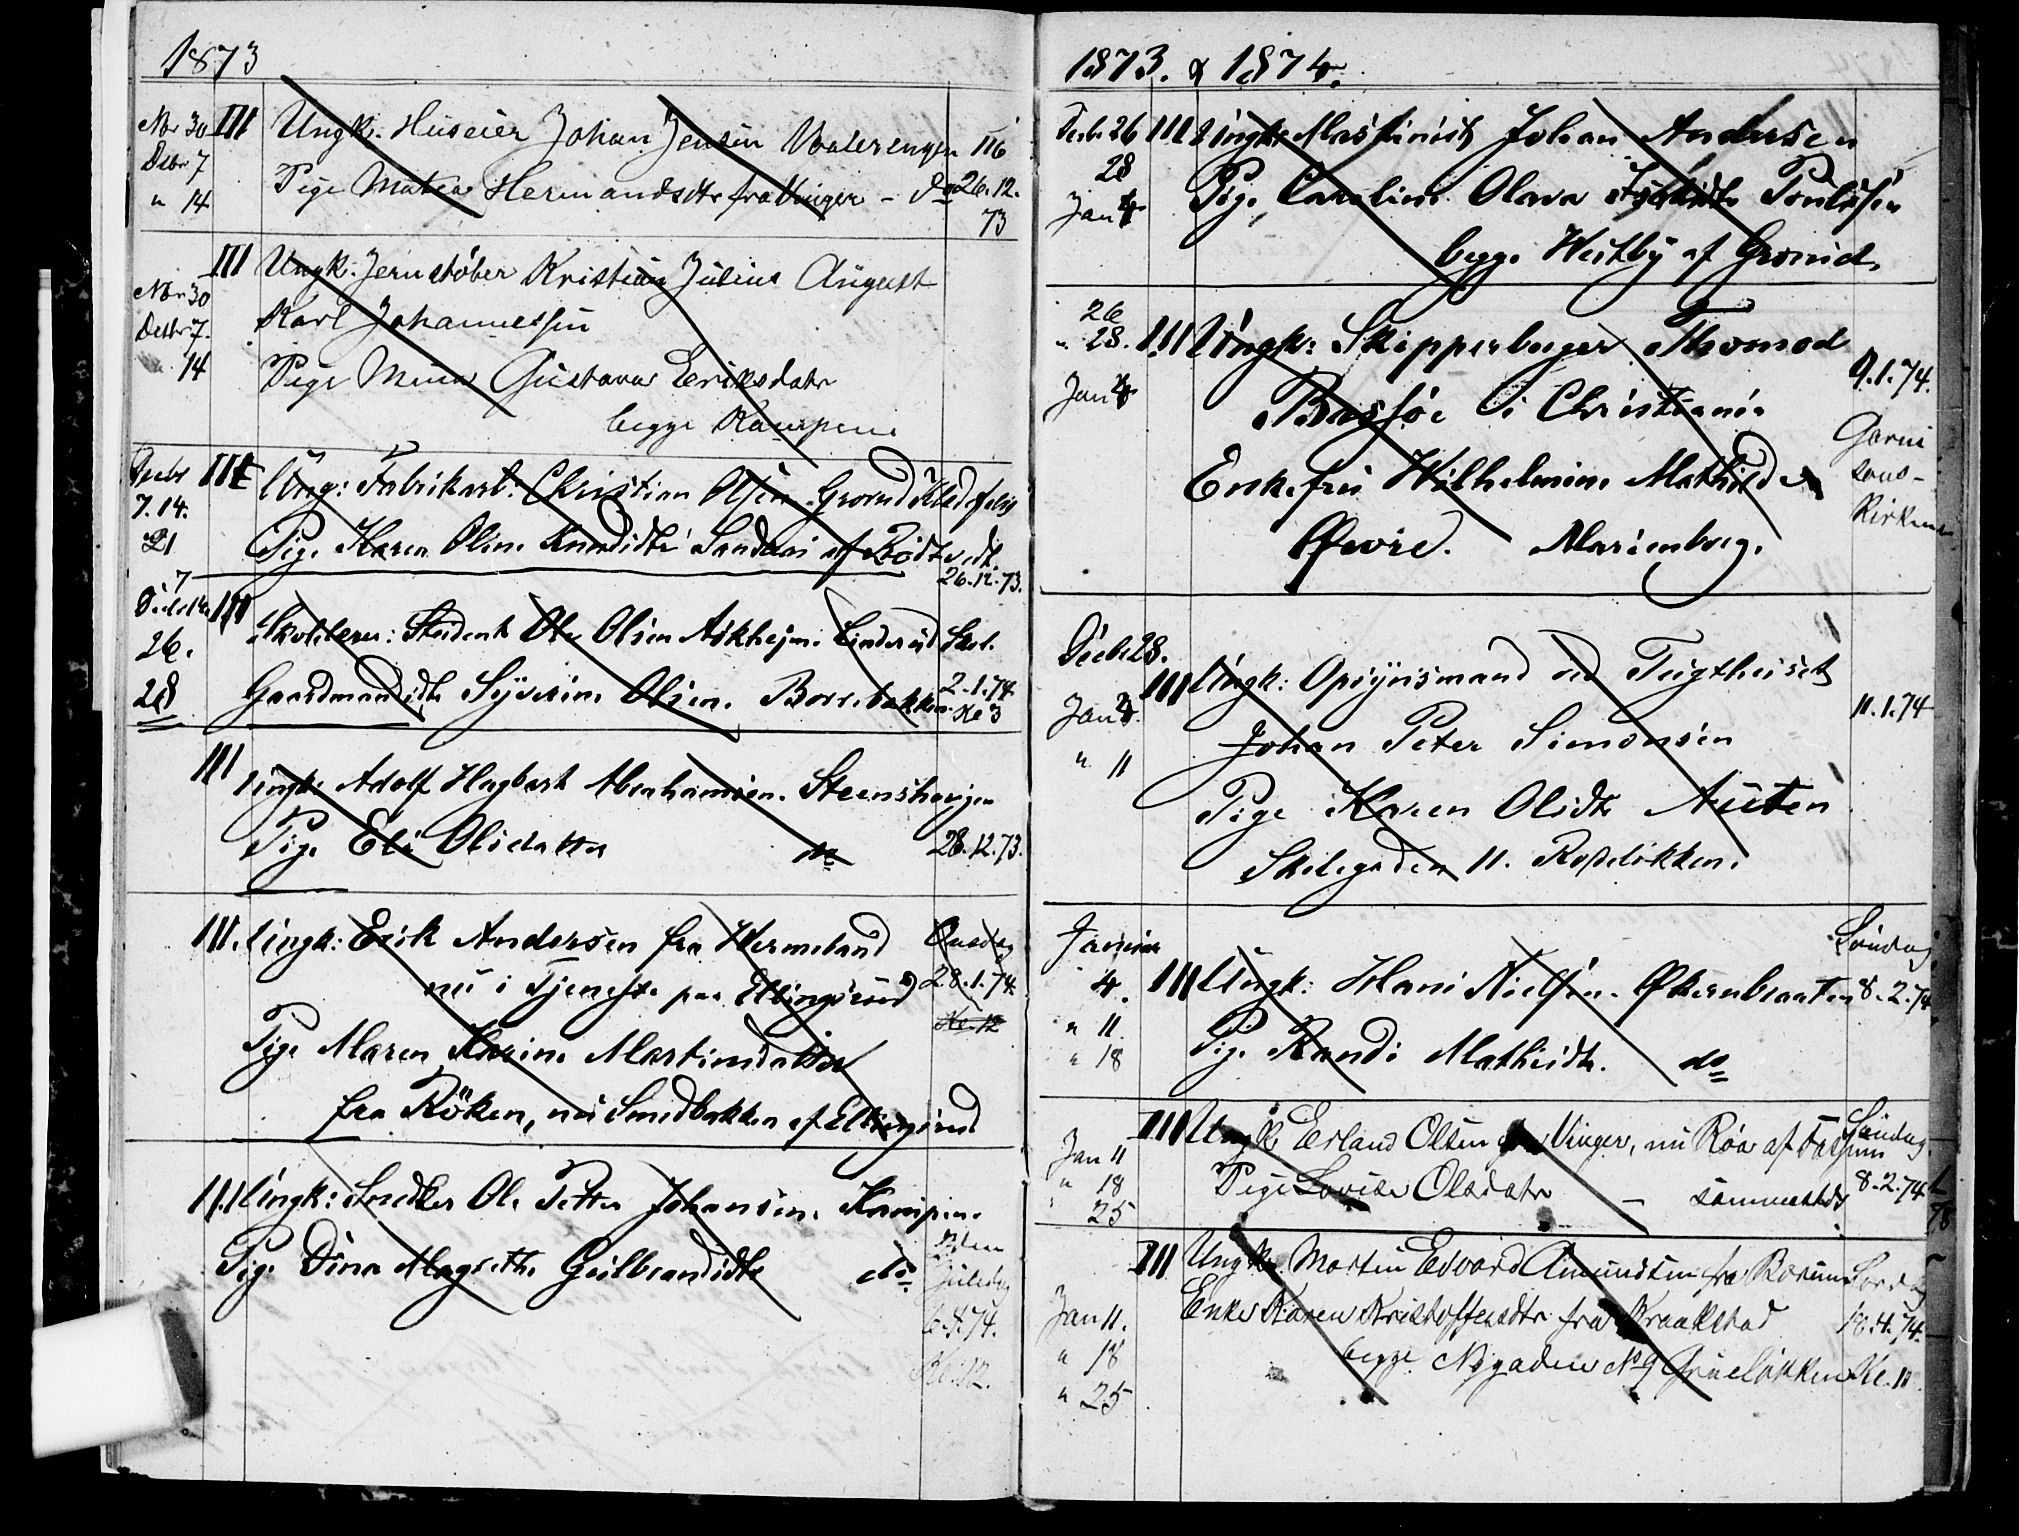 1873
Nbr 30 III Ungk. Huseier Johan Jensen Vaalerengen 116
Decbr 7 Pige Matea Hermandsdtr fra Vinger - do 26.12.
" 14 73
III Ungk. Jernstøber Kristian Julius August
Nbr 30 Karl Johannessen
Decbr 7.
" 14 Pige Mina Gustava Eriksdatr
begge Kampene
Decbr III Ung: Fabrikarb: Christian Olsen Grorud Klædefabr
7. 14.
21 Pige Karen Oline Knudsdtr Sandaas af Rødtvedt.
26.12.73.
7
Decbr 14 III Skolelærer: Student Ole Olsen Askhejm. Linderud Skol.
26.
28 Gaardmandsdtr Syverine Olsen. Borrebakken 2.1.74
Kl 3
III Ungk: Adolf Hagbart Abrahamsen. Steenshaugen
Pige Eli Olsdatter do 28.12.73.
III. Ungk: Erik Andersen fra Wermeland Onsdag
nu i Tjeneste paa Ellingsrud 28.1.74.
Kl. 12
Pige Maren Karine Martinsdatter
fra Röken, nu Smedbakken af Ellingsrud
III Ungk: Snedker Ole Petter Johansen. Kampene
Pige Dina Magrethe Gulbrandsdtr do 2den
Juledag
6.4.74.
Kl. 12.
1873. & 1874.
Decbr 26 III Ungk: Maskinist Johan Andersen
28 Pige Caroline Olava Poulsen
Jan 4
begge Westby af Grorud.
26
" 28. III Ungk: Skipperborger Thormod
9.1.74.
Jan 4 Bassøe i Christiania
Garni
sons-
Enkefru Wilhelmine Mathilde
Kirken
Øevre. Marienborg.
Decbr 28.
III Ungk: Opsynsmand ved Tugthuset
Jan 4. 11.1.74
Johan Peter Simonsen
" 11
Pige Karen Olsdtr Austen
Skolegaden 11. Rodeløkken.
Januar Söndag
4. III Ungk: Hans Nielsen. Økernbraaten 8.2.74
" 11.
" 18 Pige Randi Mathisdtr. do
III Ungk Erland Olsen fra Vinger, nu Røa af Fossum Søndag
Jan 11
" 18 Pige Lovise Olsdatr - sammesteds 8.2.74
" 25
III Ungk. Martin Edvard Amundsen fra Bærum Lørdag
Jan 11. Enke Karen Kristoffersdtr fra Kraakstad 18.4.74.
" 18 begge Nygaden No 9 Grüneløkken Kl. 11
" 25